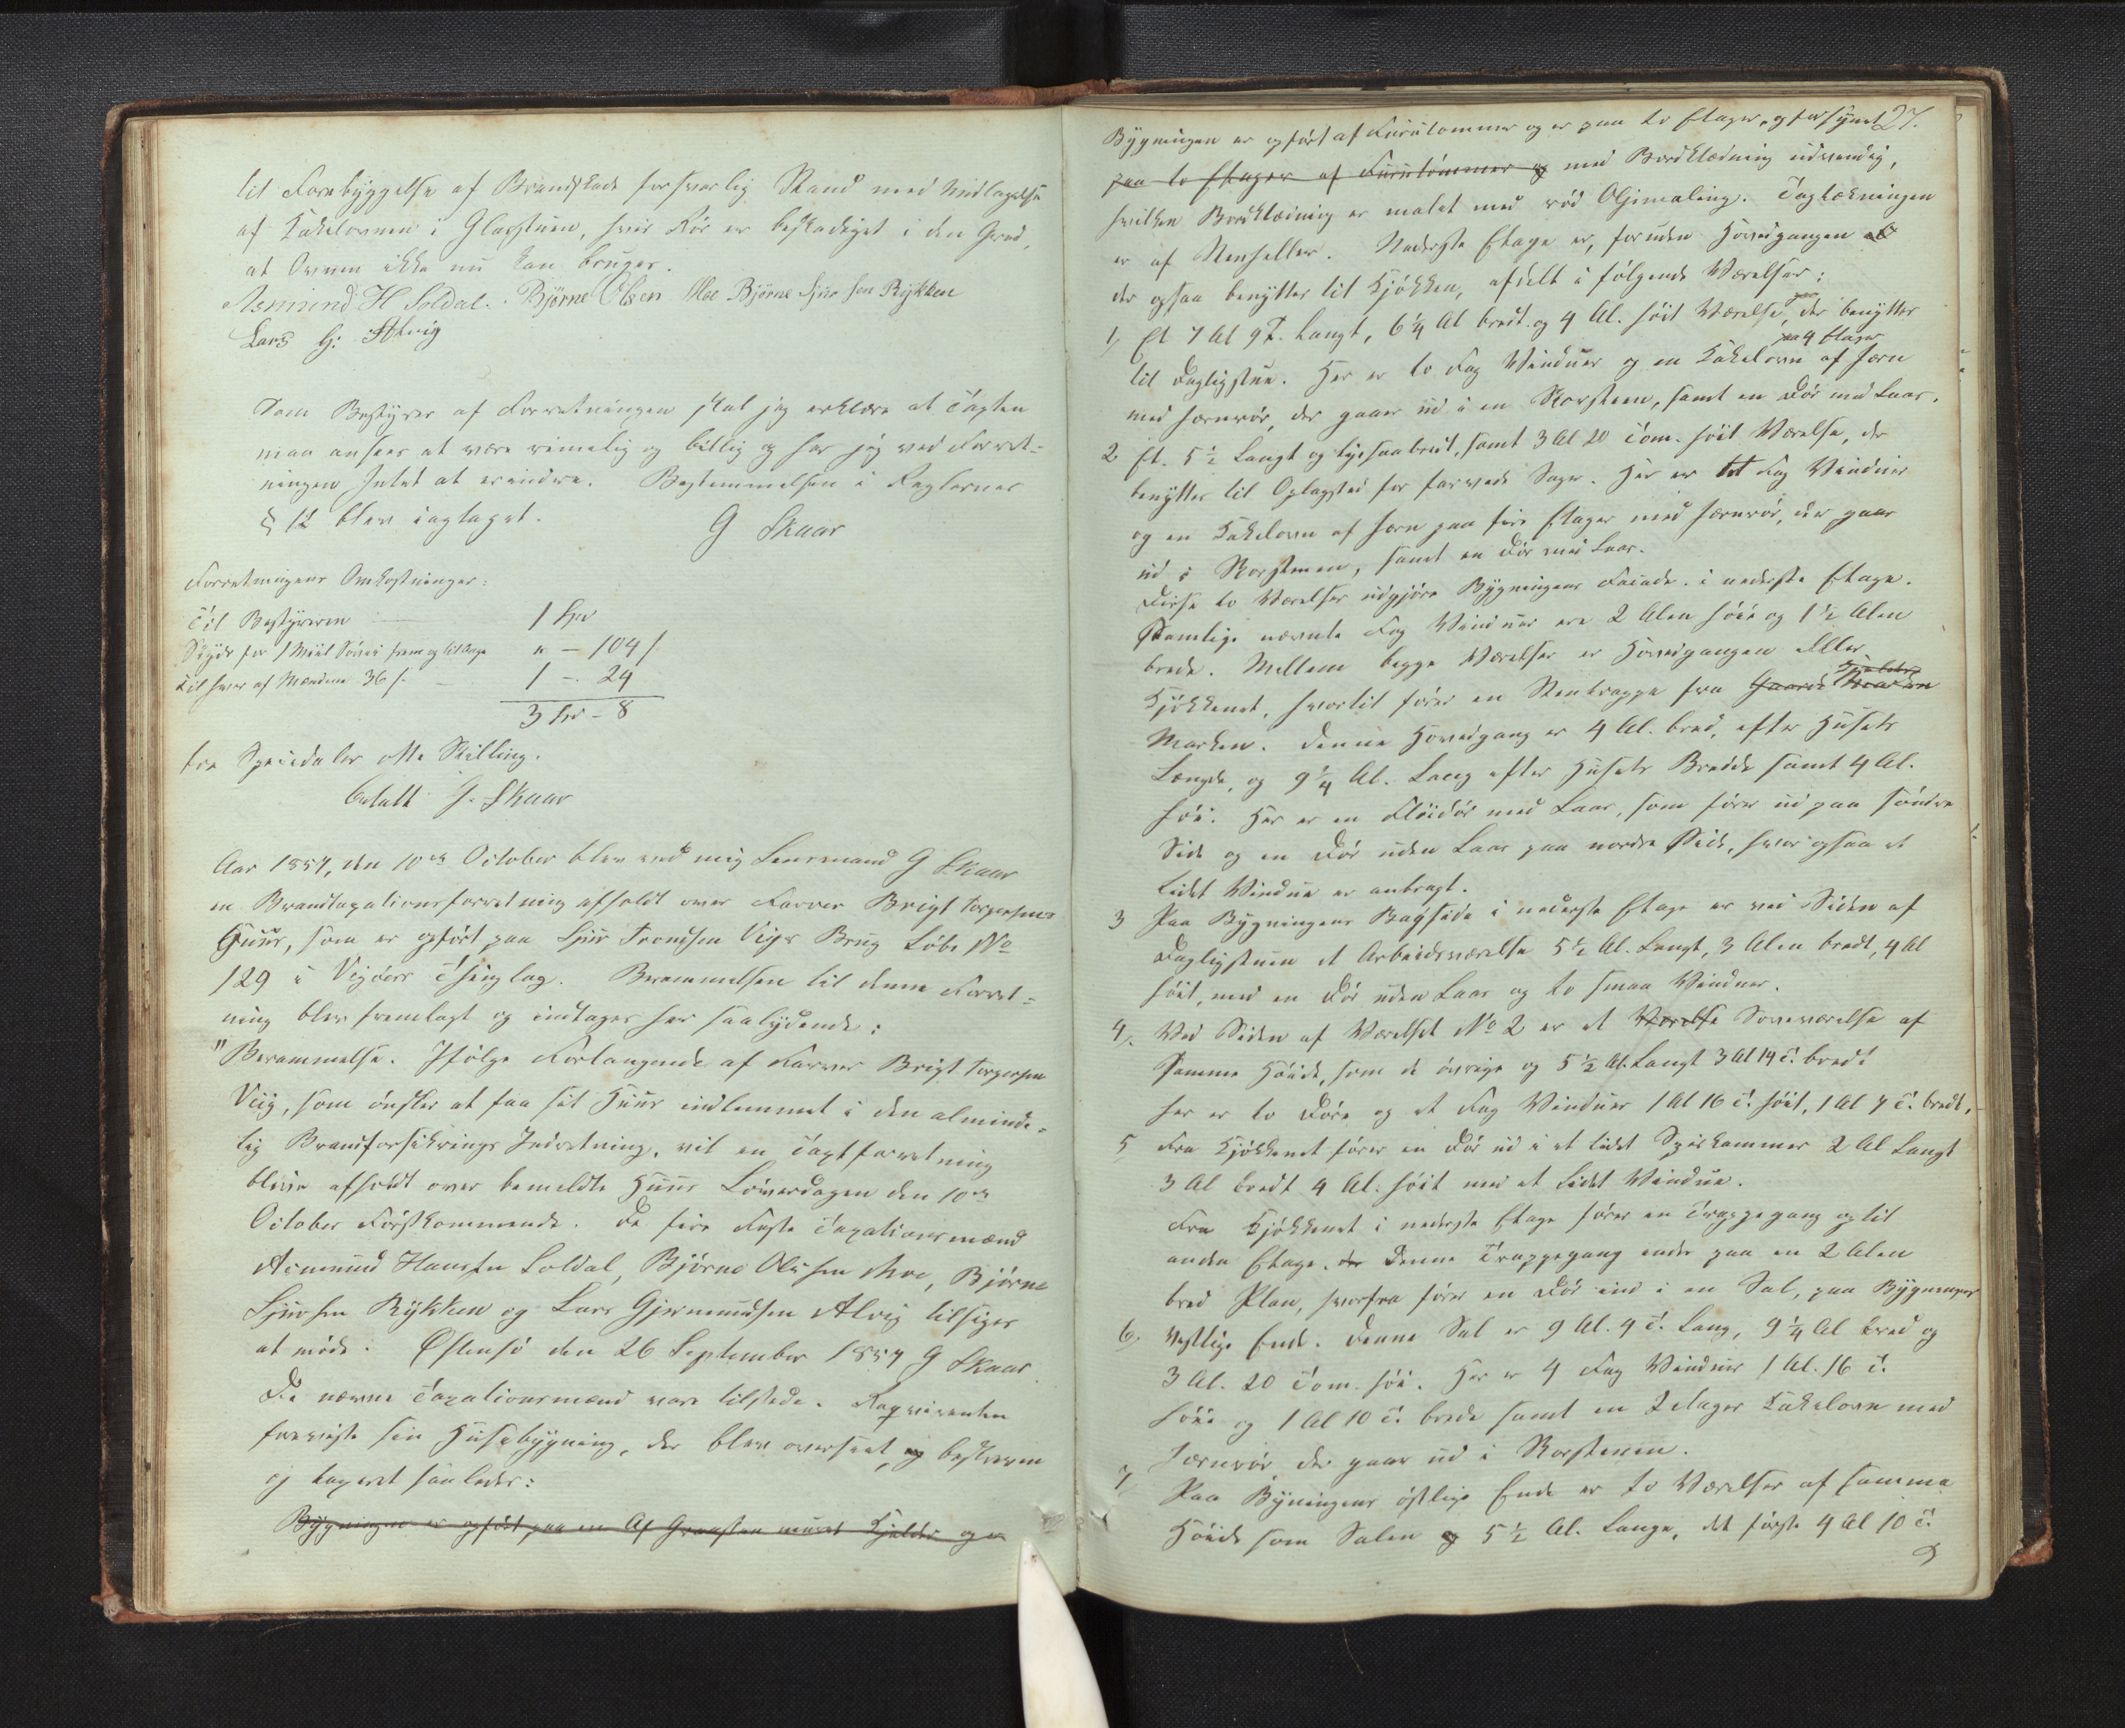 til Forebyggelse af Brandskade forsvarlig Stand med Undtagelse
af Kakelovnen i Glasstuen, hvis Rør er beskadiget i den Grad,
at Ovnen ikke nu kan bruges.
Asmund H Soldal. Bjørne Olsen Moe Bjørne Sjur sen Rykken
Lars G: Alvig
Som Bestyrer af Forretningen skal jeg erklære at Taxten
maa ansees at være rimelig og billig og har jeg ved Forret-
ningen Intet at erindre. Bestemmelsen i Reglernes
§ 12 blev iagtaget.
G Skaar
Forretningens Omkostninger:
Til Bestyreren 1 Spd
Skyds for 1 Miil Søvei frem og tilbage " - 104 s
Til hver af Mændene 36 s. - 1 - 24
3 Spd - 8
tre Speciedaler otte Skilling.
Betalt G. Skaar
Aar 1857, den 10de October blev ved mig Lensmand G Skaar
en Brandtaxationsforretning afholdt over Farver Brigt Torgersens
Huus, som er opført paa Sjur Trondsen Vigs Brug Løbe No
129 i Vigøers Thinglag. Berammelsen til denne Forret-
ning blev fremlagt og indtages her saalydende:
"Berammelse. Ifølge Forlangende af Farver Brigt Torgersen
Viig, som ønsker at faa sit Huus indlemmet i den alminde-
lig Brandforsikrings Indretning, vil en Taxtforretning
blive afholdt over bemeldte Huus Løverdagen den 10de
October Førstkommende. De fire Faste Taxationsmænd
Asmund Hansen Soldal, Bjørne Olssen Moe, Bjørne
Sjursen Rykken og Lars Gjermundsen Alvig tilsiges
at møde. Østensø den 26 September 1857 G Skaar.
De nævnte Taxationsmænd vare tilstede. Reqvirenten
foreviste sin Husebygning, der blev overseet, og beskreven
og taxeret saaledes:
Bygningen er opført paa en Af Graasten muret Kjelder og er
27.
Bygningen er opført af Furutømmer og er paa to Etager, og forsynet
paa to Etager af Furutømmer og med Bordklædning udvendig,
hvilken Bordklædning er malet med rød Oljemaling. Tagtækningen
er af Steenheller. Nederste Etage er, foruden Hovedgangen
der ogsaa benyttes til Kjøkken, afdelt i følgende Værelser:
1, Et 7 Al 9 T. Langt, 6 1/4 Al bredt og 4 Al. høit Værelse, der benyttes
paa 4 Etager
til Dagligstue. Her er to Fag Vinduer og en Kakelovn af Jern
med Jernrør, der gaaer ud i en Skorsteen, samt en Dør med Laas.
2 Et. 5 1/2 Langt og ligesaa bredt, samt 3 Al 20 Tom. høit Værelse, der
benyttes til Oplagssted for farvede Sager. Her er tet Fag Vinduer
og en Kakelovn af Jern paa fire Etager med Jernrør, der gaar
ud i Skorstenen, samt en Dør med Laas.
Disse to Værelser udgjøre Bygningens Facade i nederste Etage.
Samtlige nævnte Fag Vinduer ere 2 Alen høie og 1 1/2 Alen
brede. Mellem begge Værelser er Hovedgangen eller
Kjøkkenet, hvortil fører en Stentrappe fra Gaards
Marken. Denne Hovedgang er 4 Al. bred, efter Husets
Længde, og 9 1/4 Al. Lang efter Husets Bredde samt 4 Al.
høi. Her er en Fløidør med Laas, som fører ud paa søndre
Side og en Dør uden Laas paa nordre Side, hvor ogsaa et
Lidet Vindue er anbragt.
3 Paa Bygningens Bagside i nederste Etage er ved Siden af
Dagligstuen et Arbeidsværelse 5 1/2 Al. Langt, 3 Alen bredt, 4 Al
høit, med en Dør uden Laas og to smaa Vinduer.
4, Ved Siden af Værelset No 2 er et Værelse Soveværelse af
Samme Høide, som de øvrige og 5 1/2 Al. Langt 3 Al 14 T. bredt
her er to Døre og et Fag Vinduer 1 Al 16 T. høit, 1 Al 7 T. bredt.
5 Fra Kjøkkenet fører en Dør ud i et lidet Spiskammer 2 Al Langt
3 Al bredt 4 Al. høit med et Lidet Vindue.
Fra Kjøkkenet i nederste Etage fører en Trappegang op til
anden Etage. Denne Trappegang ender paa en 2 Alen
bred Plan, hvorfra fører en Dør ind i en Sal, paa Bygningens
6, vestlige Ende. Denne Sal er 9 Al. 4 T. Lang, 9 1/4 Al bred og
3 Al. 20 Tom. høi. Her er 4 Fag Vinduer 1 Al. 16 T.
høie og 1 Al 10 T. brede samt en 2 Etages Kakelovn med
Jernrør, der gaar ud i Skorstenen.
7, Paa Bygningens østlige Ende er to Værelser af samme
Høide som Salen og 5 1/2 Al. Lange, det første 4 Al 10 T.